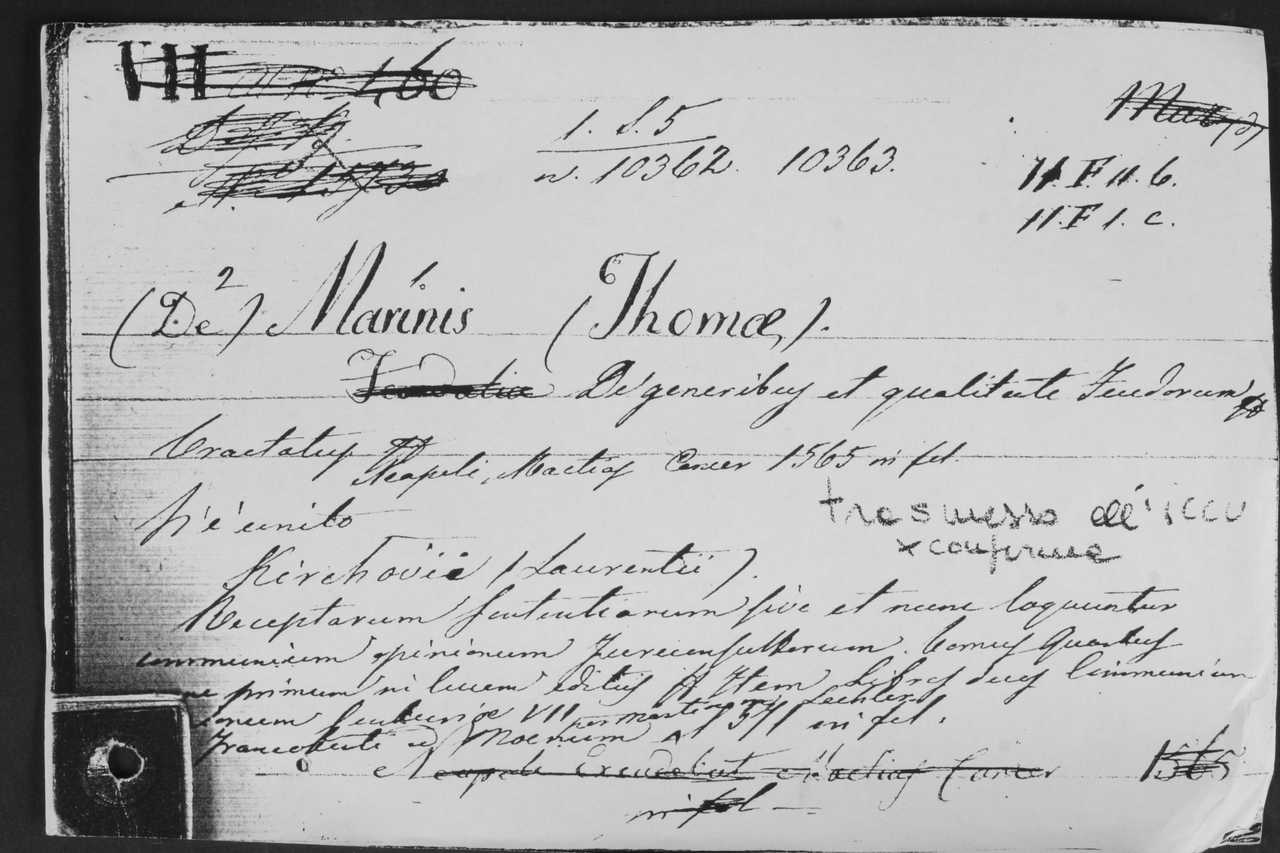 VII 460
1. S. 5
n. 10362. 10363.
11. F. 11. 6.
11. F 1. c.
(De)² Marinis¹ (Thomæ).
De generibus et qualitate Feudorum
Tractatus
Neapoli, Mactias Cancer 1565 in fol.
V'è unito
trasmesso all'ICCU
x conferma
Kirchovii (Laurentii).
Receptarum sententiarum sive et nunc loquuntur
communium opinionum Jureconsultorum. Tomus Quartus
primum in lucem editus Item Libros duos Communium
VII per Martinum Lechler
Francofurti ad Moenum 1571 in fol.
Neapoli Excudebat Mactias Cancer 1565
in fol